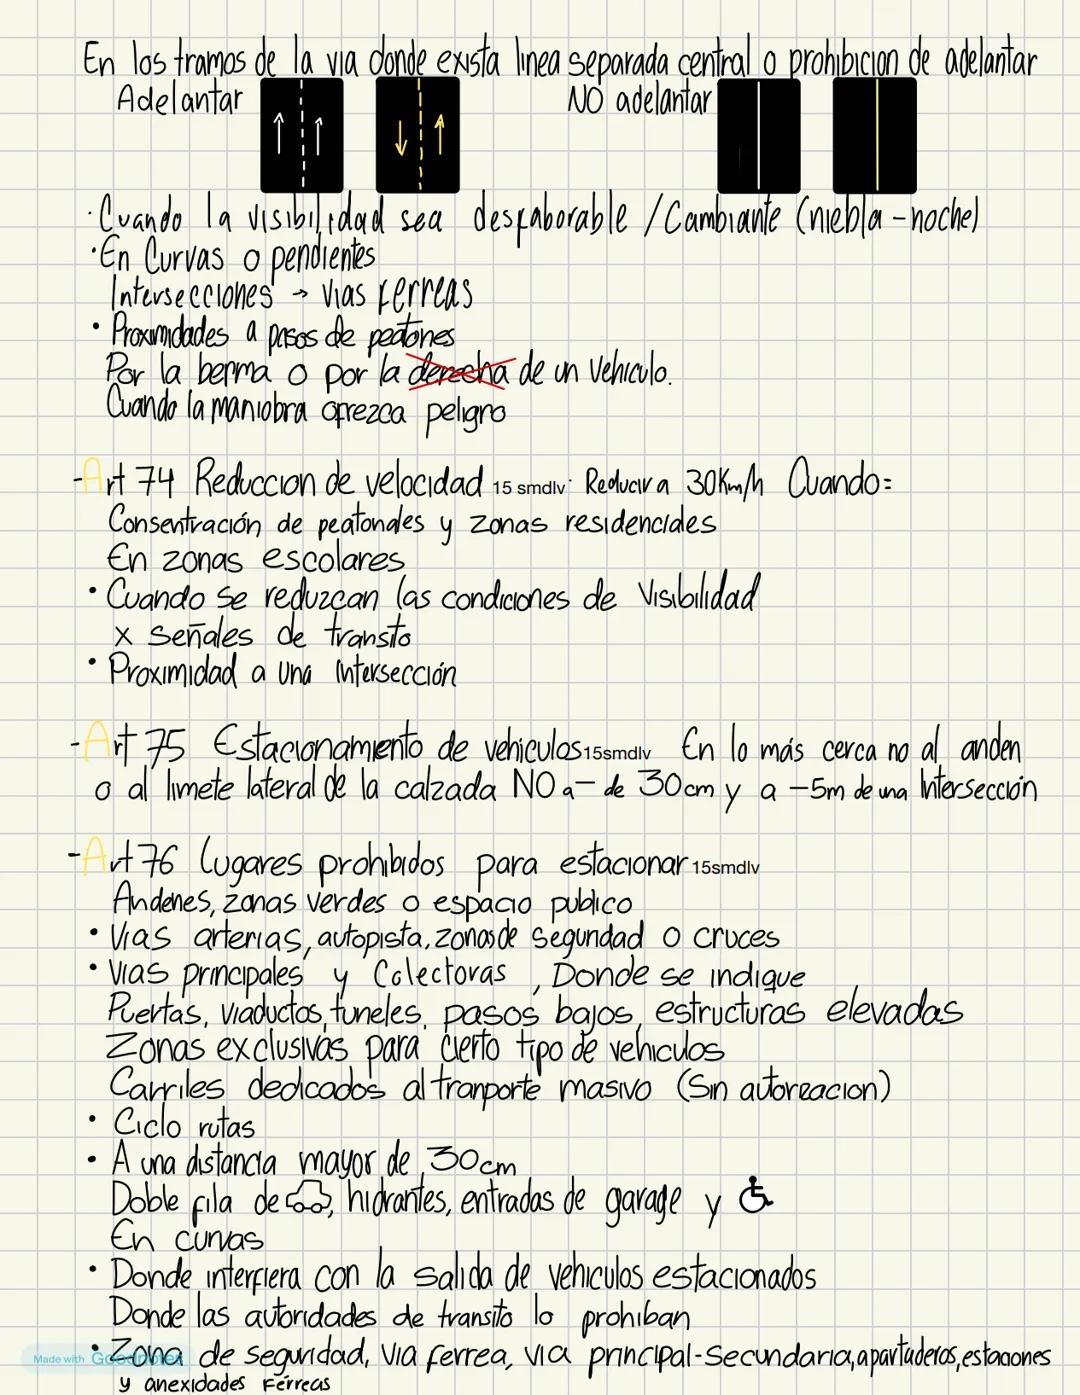 En los tramos de la via donde exista linea separada central o prohibicion de adelantar
Adelantar NO adelantar
·Cuando la visibilidad sea desfaborable / Cambiante (niebla-noche)
·En Curvas o pendientes
Intersecciones → vias ferreas
• Proximidades a pasos de peatones
Por la berma o por la derecha de un vehiculo.
Cuando la maniobra ofrezca peligro
-Art 74 Reduccion de velocidad 15 smdlv Reducir a 30Km/h Cuando:
Consentración de peatonales y zonas residenciales
En zonas escolares
• Cuando se reduzcan las condiciones de Visibilidad
x Señales de transito
• Proximidad a una intersección
-Art 75 Estacionamiento de vehiculos 15smdlv En lo más cerca no al anden
o al limete lateral de la calzada NO a - de 30cm y a -5m de una intersección
-Art 76 Lugares prohibidos para estacionar 15smdlv
Andenes, zonas verdes o espacio publico
• Vias arterias, autopista, zonas de seguridad o cruces
• Vias principales y Colectoras, Donde se indique
Puertas, viaductos, tuneles, pasos bajos, estructuras elevadas
Zonas exclusivas para cierto tipo de vehiculos
Carriles dedicados al tranporte masivo (Sin autorizacion)
• Ciclo rutas
• A una distancia mayor de 30cm
Doble fila de , hidrantes, entradas de garage y
En curvas
• Donde interfiera con la salida de vehiculos estacionados
Donde las autoridades de transito lo prohiban
• Zona de seguridad, Via ferrea, via principal-Secundaria, apartaderos, estaciones
y anexidades Férreas
Made with Goodnotes